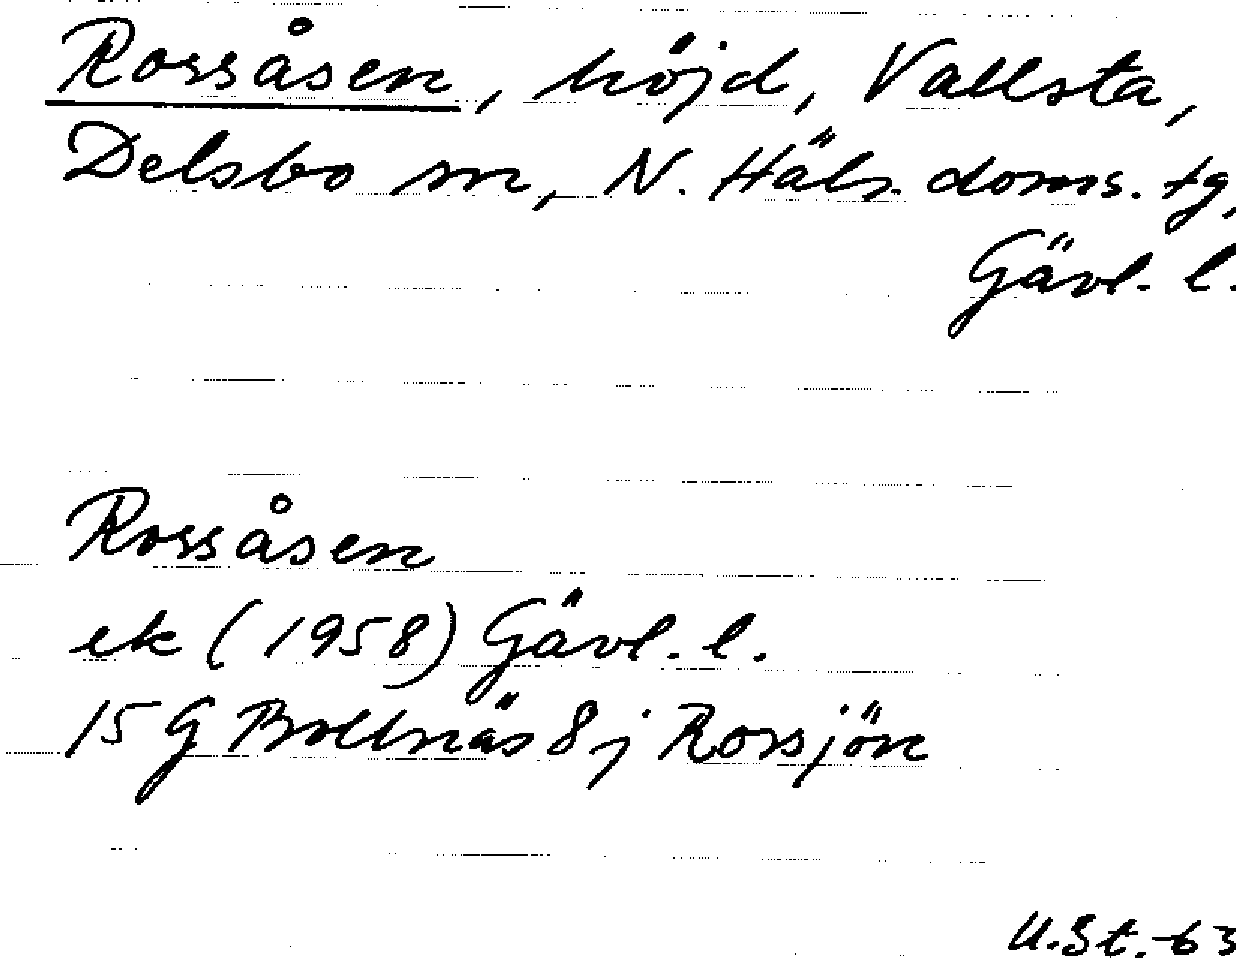 Rossåsen, höjd, Vallsta,
Delsbo sn, N. Häls. doms. tg,
Gävl. l.
Rossåsen
ek (1958) Gävl. l.
15 G Bollnäs 8 j Rossjön
U.St.-63